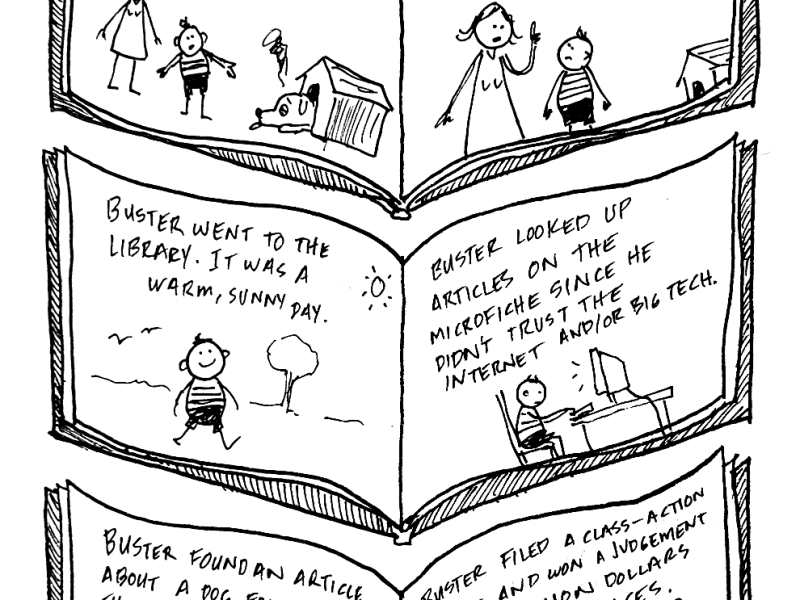 BUSTER WENT TO THE
LIBRARY. IT WAS A
WARM, SUNNY DAY.
BUSTER LOOKED UP
ARTICLES ON THE
MICROFICHE SINCE HE
DIDN'T TRUST THE
INTERNET AND/OR BIG TECH.
BUSTER FOUND AN ARTICLE
ABOUT A DOG
BUSTER FILED A CLASS-ACTION
AND WON A JUDGEMENT
DOLLARS